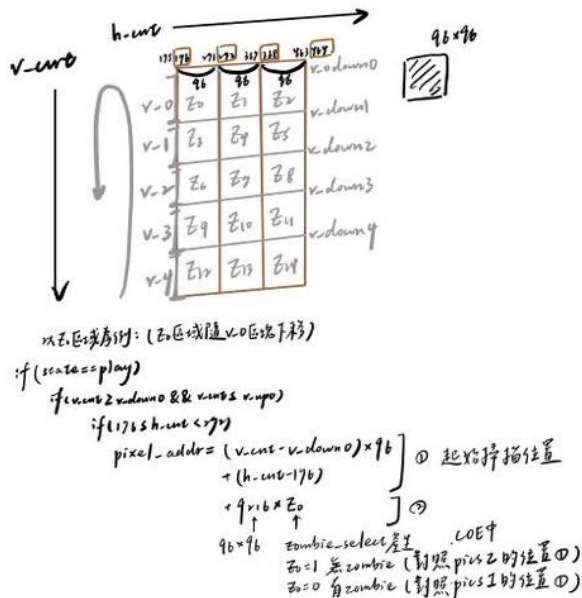 h-cnt
96×96
v-cnt
175 176 271 272 367 368 463 464
v-down0
96 96 96
v-0 Z0 Z1 Z2
v-down1
v-1 Z3 Z4 Z5
v-down2
v-2 Z6 Z7 Z8
v-down3
v-3 Z9 Z10 Z11
v-down4
v-4 Z12 Z13 Z14
以Z0區域為例:(Z0區域隨v-0區塊下移)
if(state==play)
if(v-cnt≥v-down0 && v-cnt≤v-up0)
if(176≤h-cnt<272)
pixel_addr=(v-cnt-v-down0)×96
+(h-cnt-176)
① 起始掃描位置
+9216×Z0
②
96×96 zombie_select產生 .COE中
Z0=1 無zombie(對照pics2的位置①)
Z0=0 有zombie(對照pics1的位置①)